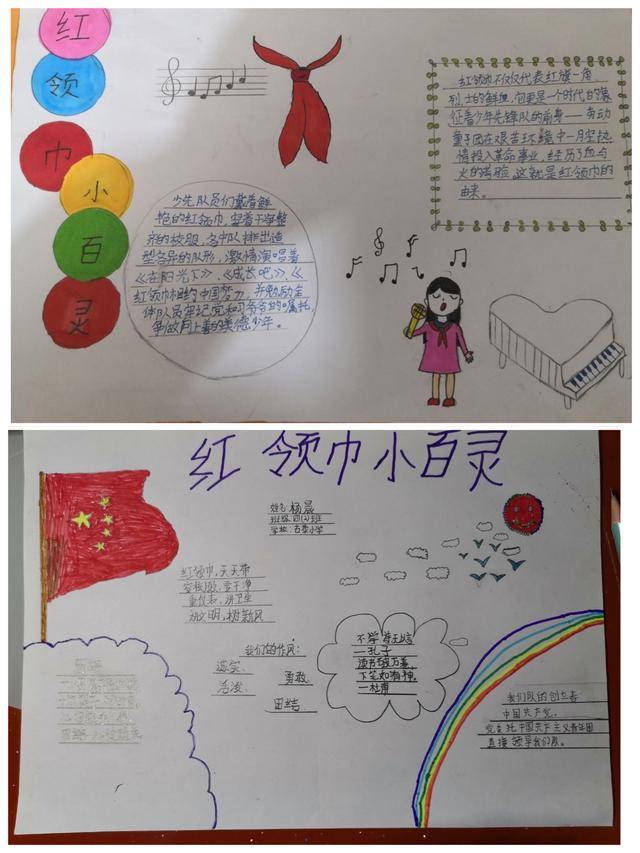 红
领
巾
小
百
灵
少先队员们戴着鲜
艳的红领巾,穿着干净整
齐的校服,各中队排出造
型各异的队形,激情演唱着
《在阳光下》、《成长吧》、《
红领巾相约中国梦》,并勉励全
体队员牢记党和习爷爷的嘱托,
争做向上善的美德少年。
红领巾不仅仅代表红旗一角
烈士的鲜血,它更是一个时代的象
征青少年先锋队的前身——劳动
童子团在艰苦环境中一月坚
情投入革命事业,经历了血与
火的考验,这就是红领巾的
由来。
红领巾小百灵
姓名:杨晨
班级:四(2)班
学校:小学
红领巾,天天带
穿校服,要干净
重仪表,讲卫生
讲文明,树新风
我们的作风:
诚实、
勇敢、
活泼、
团结
不学礼无以
—孔子
读书破万卷,
下笔如有神。
—杜甫
我们队的创立者
中国共产党。
党委托中国共产主义青年团
直接领导我们队。